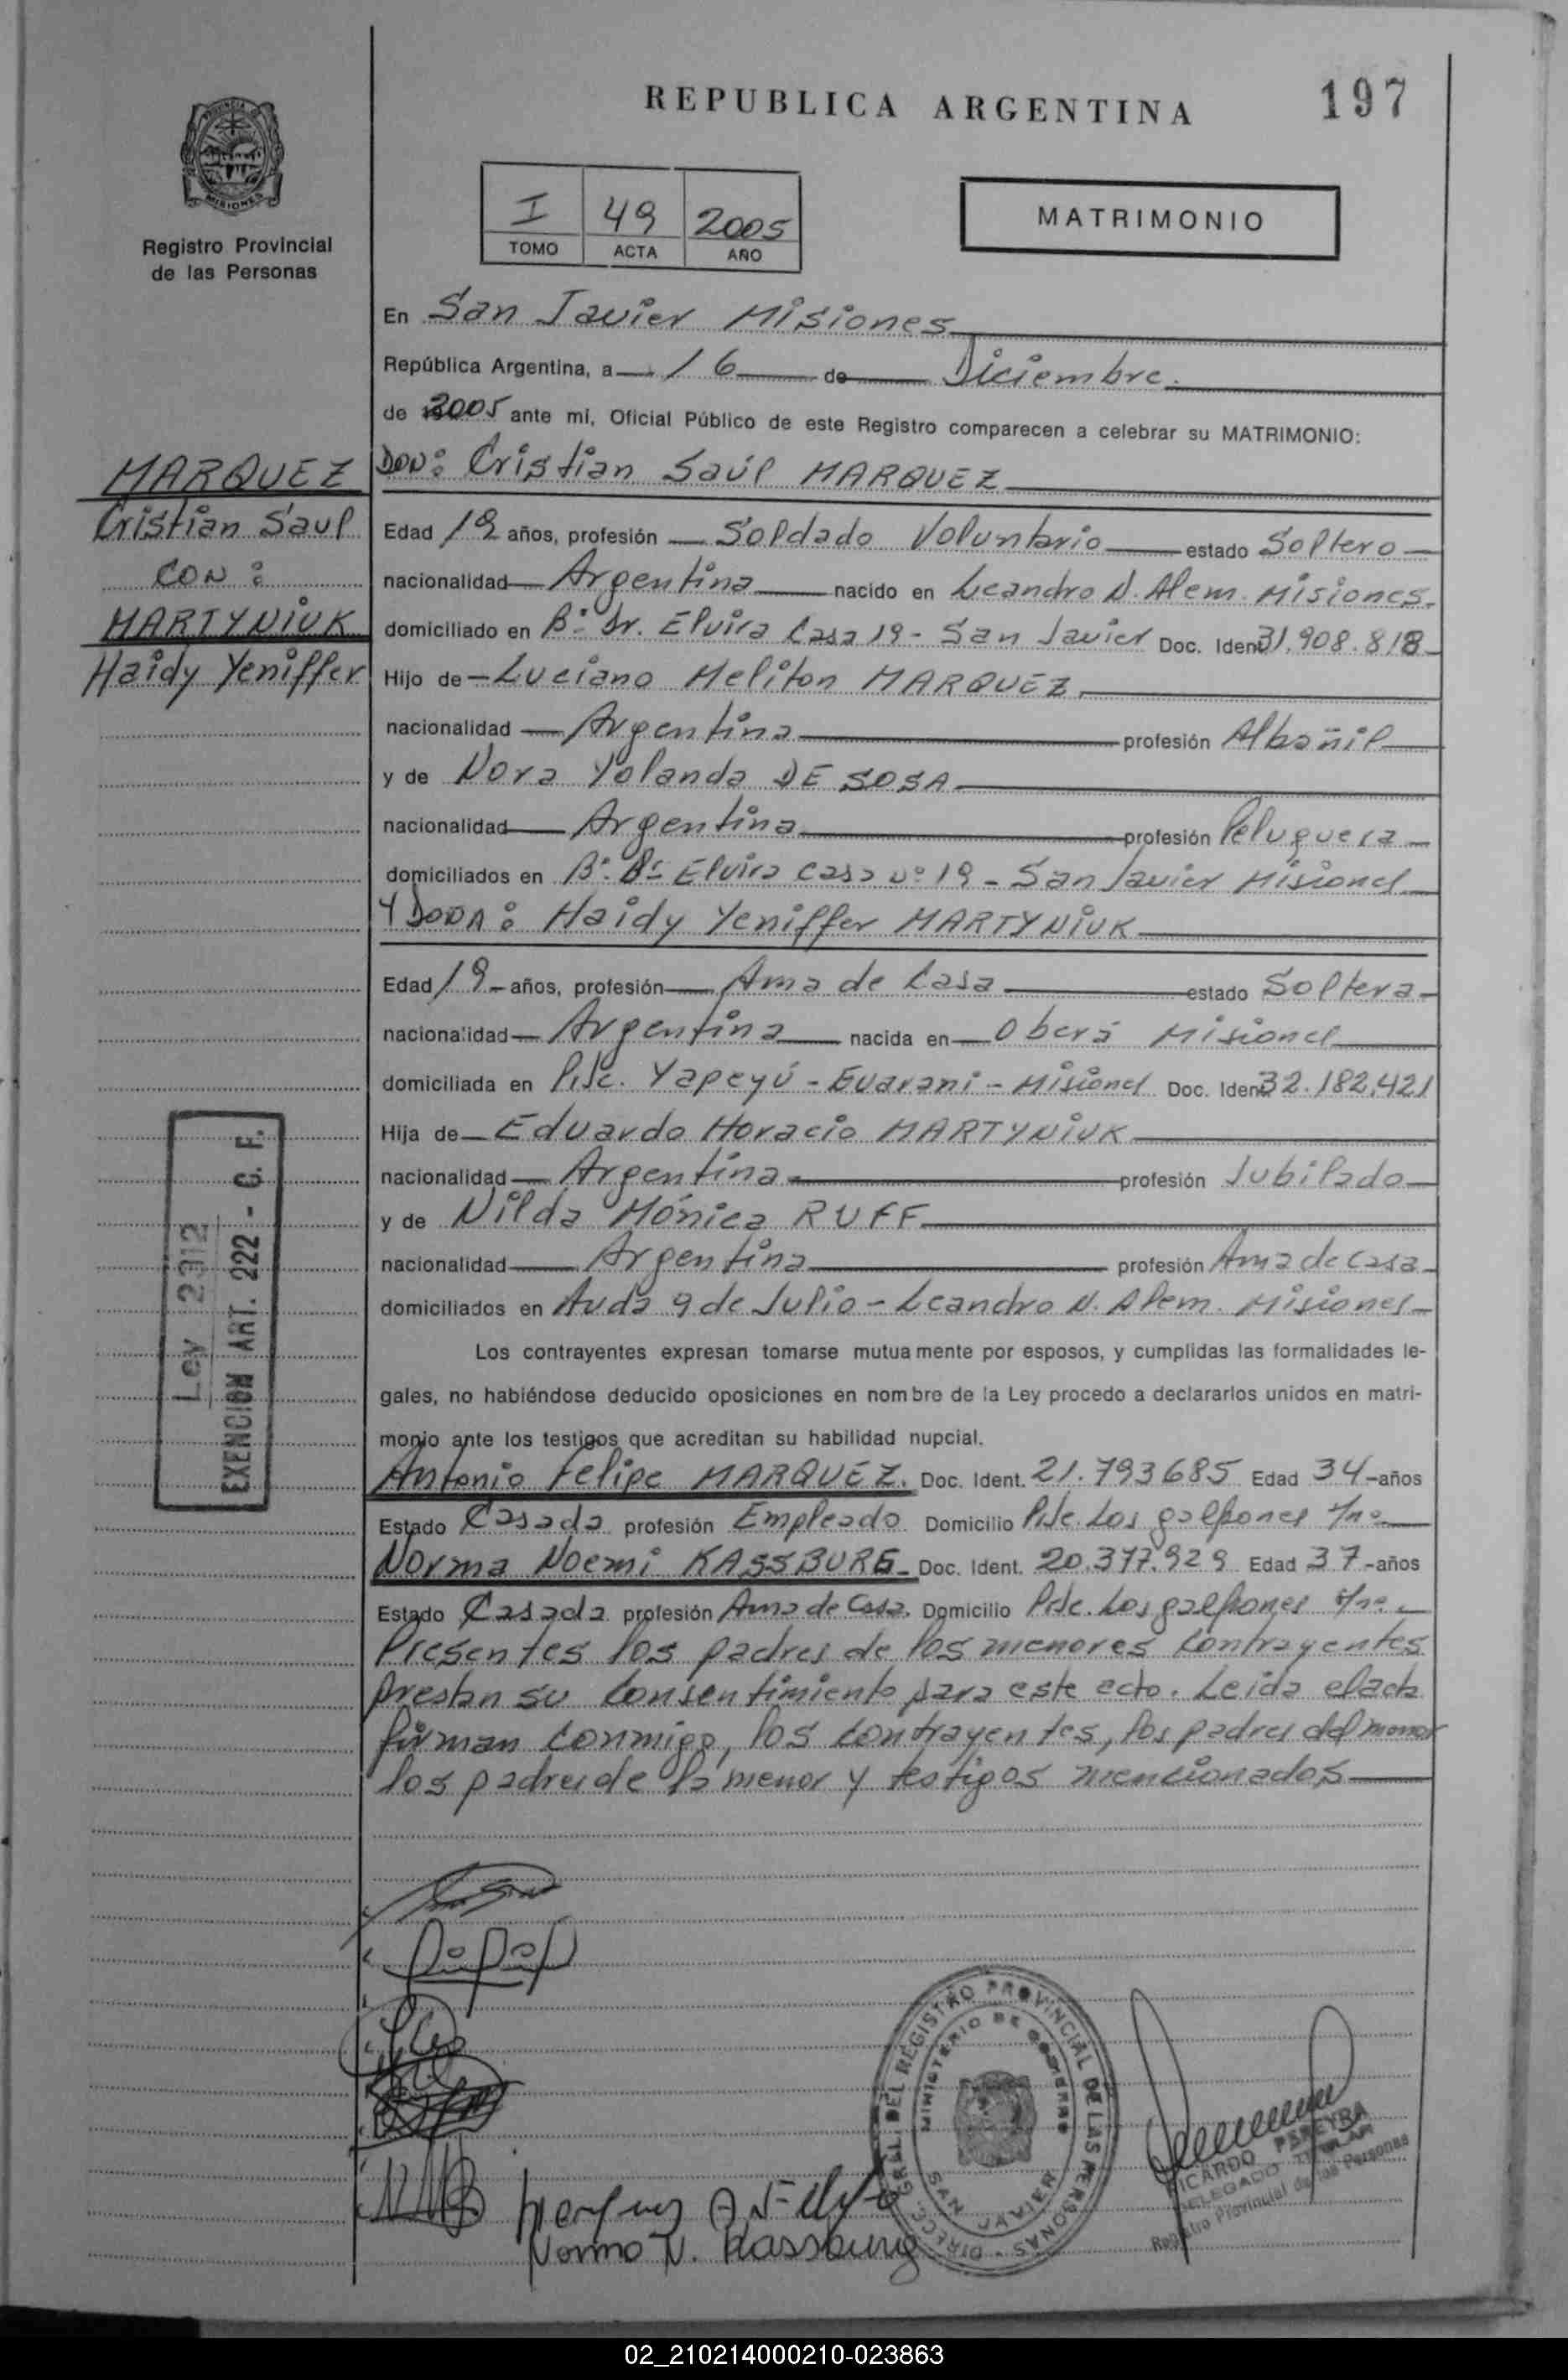 REPUBLICA ARGENTINA
197
PROVINCIA
MISIONES
Registro Provincial
de las Personas
I 49 2005
TOMO ACTA AÑO
MATRIMONIO
En San Javier Misiones
República Argentina, a 16 de Diciembre.
de 2005 ante mi, Oficial Público de este Registro comparecen a celebrar su MATRIMONIO:
MARQUEZ
Cristian Saul
CON :
MARTYNIUK
Haidy Yeniffer
DON: Cristian Saúl MARQUEZ
Edad 19 años, profesión Soldado Voluntario estado Soltero
nacionalidad Argentina nacido en Leandro N. Alem. Misiones.
domiciliado en B: Dr. Elvira Casa 19 - San Javier Doc. Ident 31.908.818
Hijo de Luciano Meliton MARQUEZ
nacionalidad Argentina profesión Albañil
y de Nora Yolanda DE SOSA
nacionalidad Argentina profesión Peluquera
domiciliados en B: Elvira Casa Nº 19 - San Javier Misiones
Y DOÑA: Haidy Yeniffer MARTYNIUK
Edad 19 años, profesión Ama de Casa estado Soltera
nacionalidad Argentina nacida en Oberá Misiones
domiciliada en Pje. Yapeyú - Guarani - Misiones Doc. Ident 32.182.421
Hija de Eduardo Horacio MARTYNIUK
nacionalidad Argentina profesión Jubilado
y de Nilda Mónica RUFF
nacionalidad Argentina profesión Ama de Casa
domiciliados en Avda 9 de Julio - Leandro N. Alem. Misiones
Ley 2312
EXENCION ART. 222 - C. F.
Los contrayentes expresan tomarse mutuamente por esposos, y cumplidas las formalidades le-
gales, no habiéndose deducido oposiciones en nombre de la Ley procedo a declararlos unidos en matri-
monio ante los testigos que acreditan su habilidad nupcial.
Antonio Felipe MARQUEZ. Doc. Ident. 21.793685 Edad 34 años
Estado Casado profesión Empleado Domicilio Pje. Los galpones s/nº
Norma Noemi KASSBURG Doc. Ident. 20.377.929 Edad 37 años
Estado Casada profesión Ama de Casa. Domicilio Pje. Los galpones s/nº
Presentes los padres de los menores contrayentes
prestan su consentimiento para este acto. Leida el acta
firman conmigo, los contrayentes, los padres del menor
los padres de la menor y testigos mencionados
Marquez
Norma N. Kassburg
DIRECC. GRAL. DEL REGISTRO PROVINCIAL DE LAS PERSONAS
MINISTERIO DE GOBIERNO
SAN JAVIER
RICARDO PEREYRA
DELEGADO TITULAR
Registro Provincial de las Personas
02_210214000210-023863